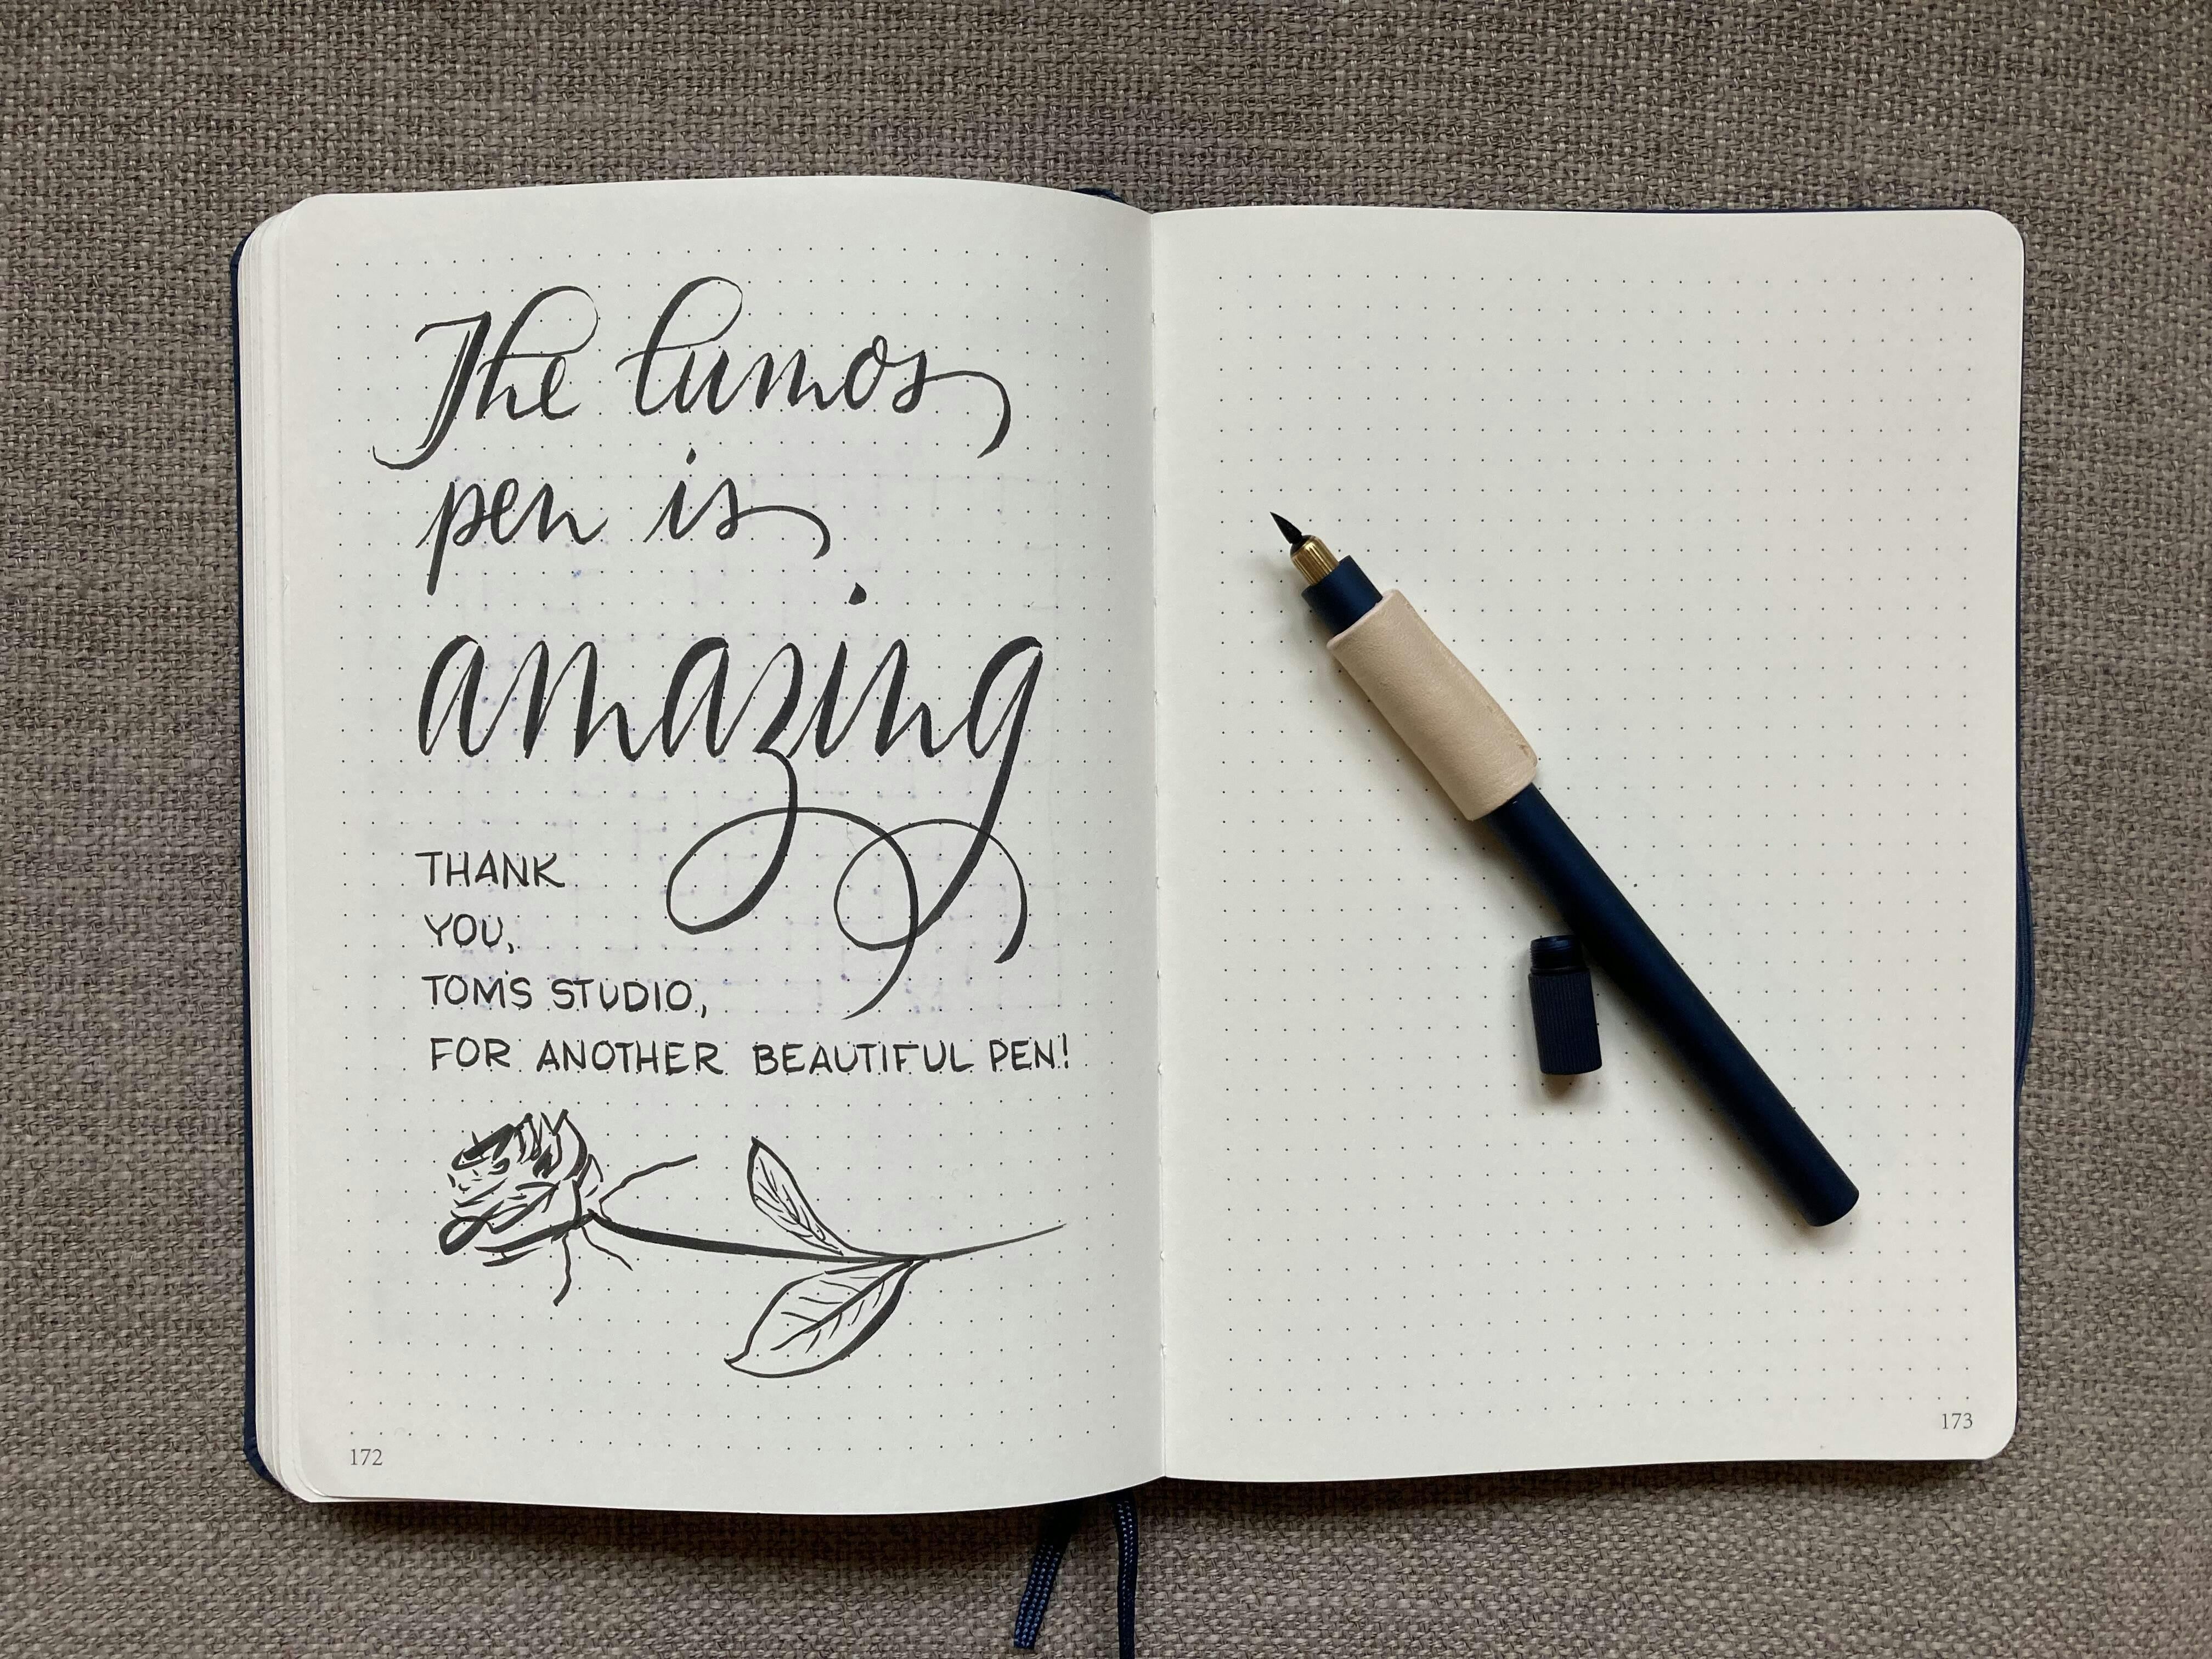 The lumos
pen is
amazing
THANK
YOU,
TOM'S STUDIO,
FOR ANOTHER BEAUTIFUL PEN!
172
173